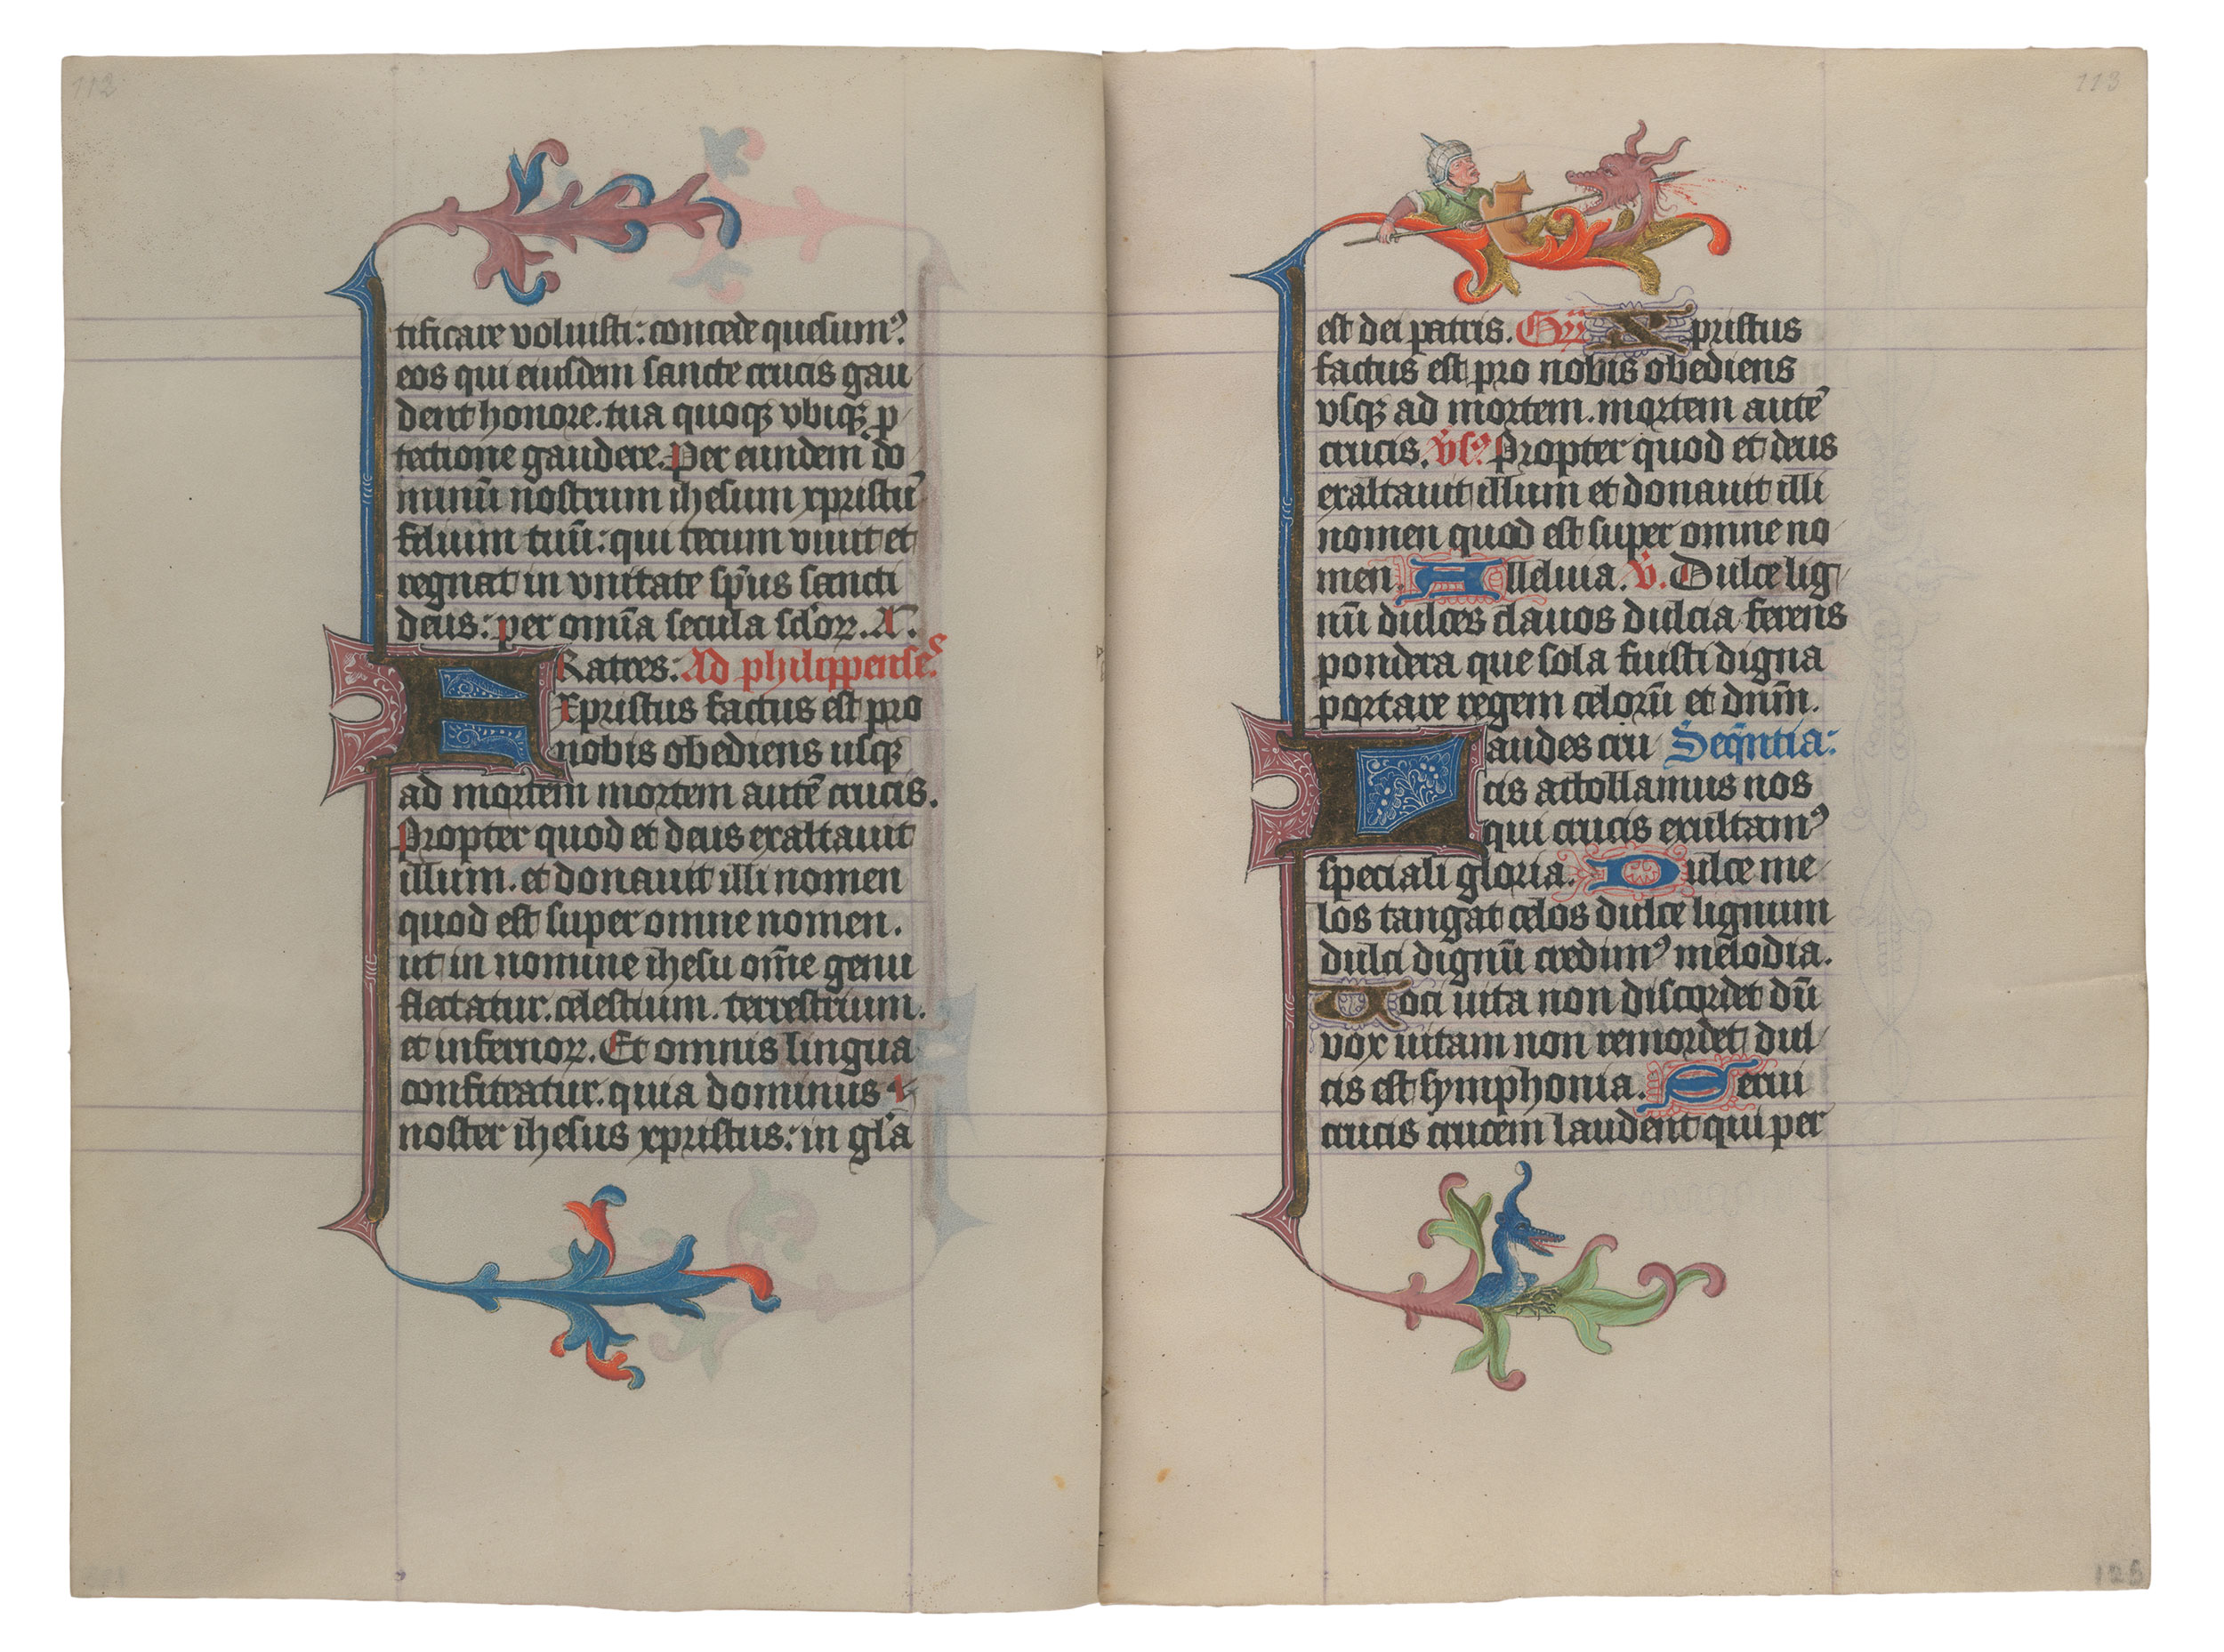 112
tificare voluisti: concede quesum⁹
eos qui eiusdem sancte crucis gau
dent honore. tua quoqꝫ vbiqꝫ ꝓ
tectione gaudere. Per eundem do
minū nostrum ihesum xpristū
filium tuū: qui tecum viuit et
regnat in vnitate spūs sancti
deus: per om̄ia secula sc̄loꝝ. A.
FRatres: Ad philippenses
Xpristus factus est pro
nobis obediens usqꝫ
ad mortem mortem autē crucis.
Propter quod et deus exaltauit
illum. et donauit illi nomen
quod est super omne nomen.
ut in nomine ihesu om̄e genu
flectatur. celestium. terrestrium.
et infernoꝝ. Et omnis lingua
confiteatur. quia dominus
noster ihesus xpristus: in gl̄a
113
est dei patris. Gr̄ Xpristus
factus est pro nobis obediens
vsqꝫ ad mortem. mortem autē
crucis. v̄s⁹ Propter quod et deus
exaltauit illum et donauit illi
nomen quod est super omne no
men. Alleluia. v̄. Dulce lig
nū dulces clauos dulcia ferens
pondera que sola fuisti digna
portare regem celorū et dn̄m.
Laudes cru Seq̄ntia:
cis attollamus nos
qui crucis exultam⁹
speciali gloria. Dulce me
los tangat celos dulce lignum
dulci dignū credim⁹ melodia.
Uoci uita non discordet dū
vox uitam non remordet dul
cis est symphonia. Serui
crucis crucem laudent qui per
125